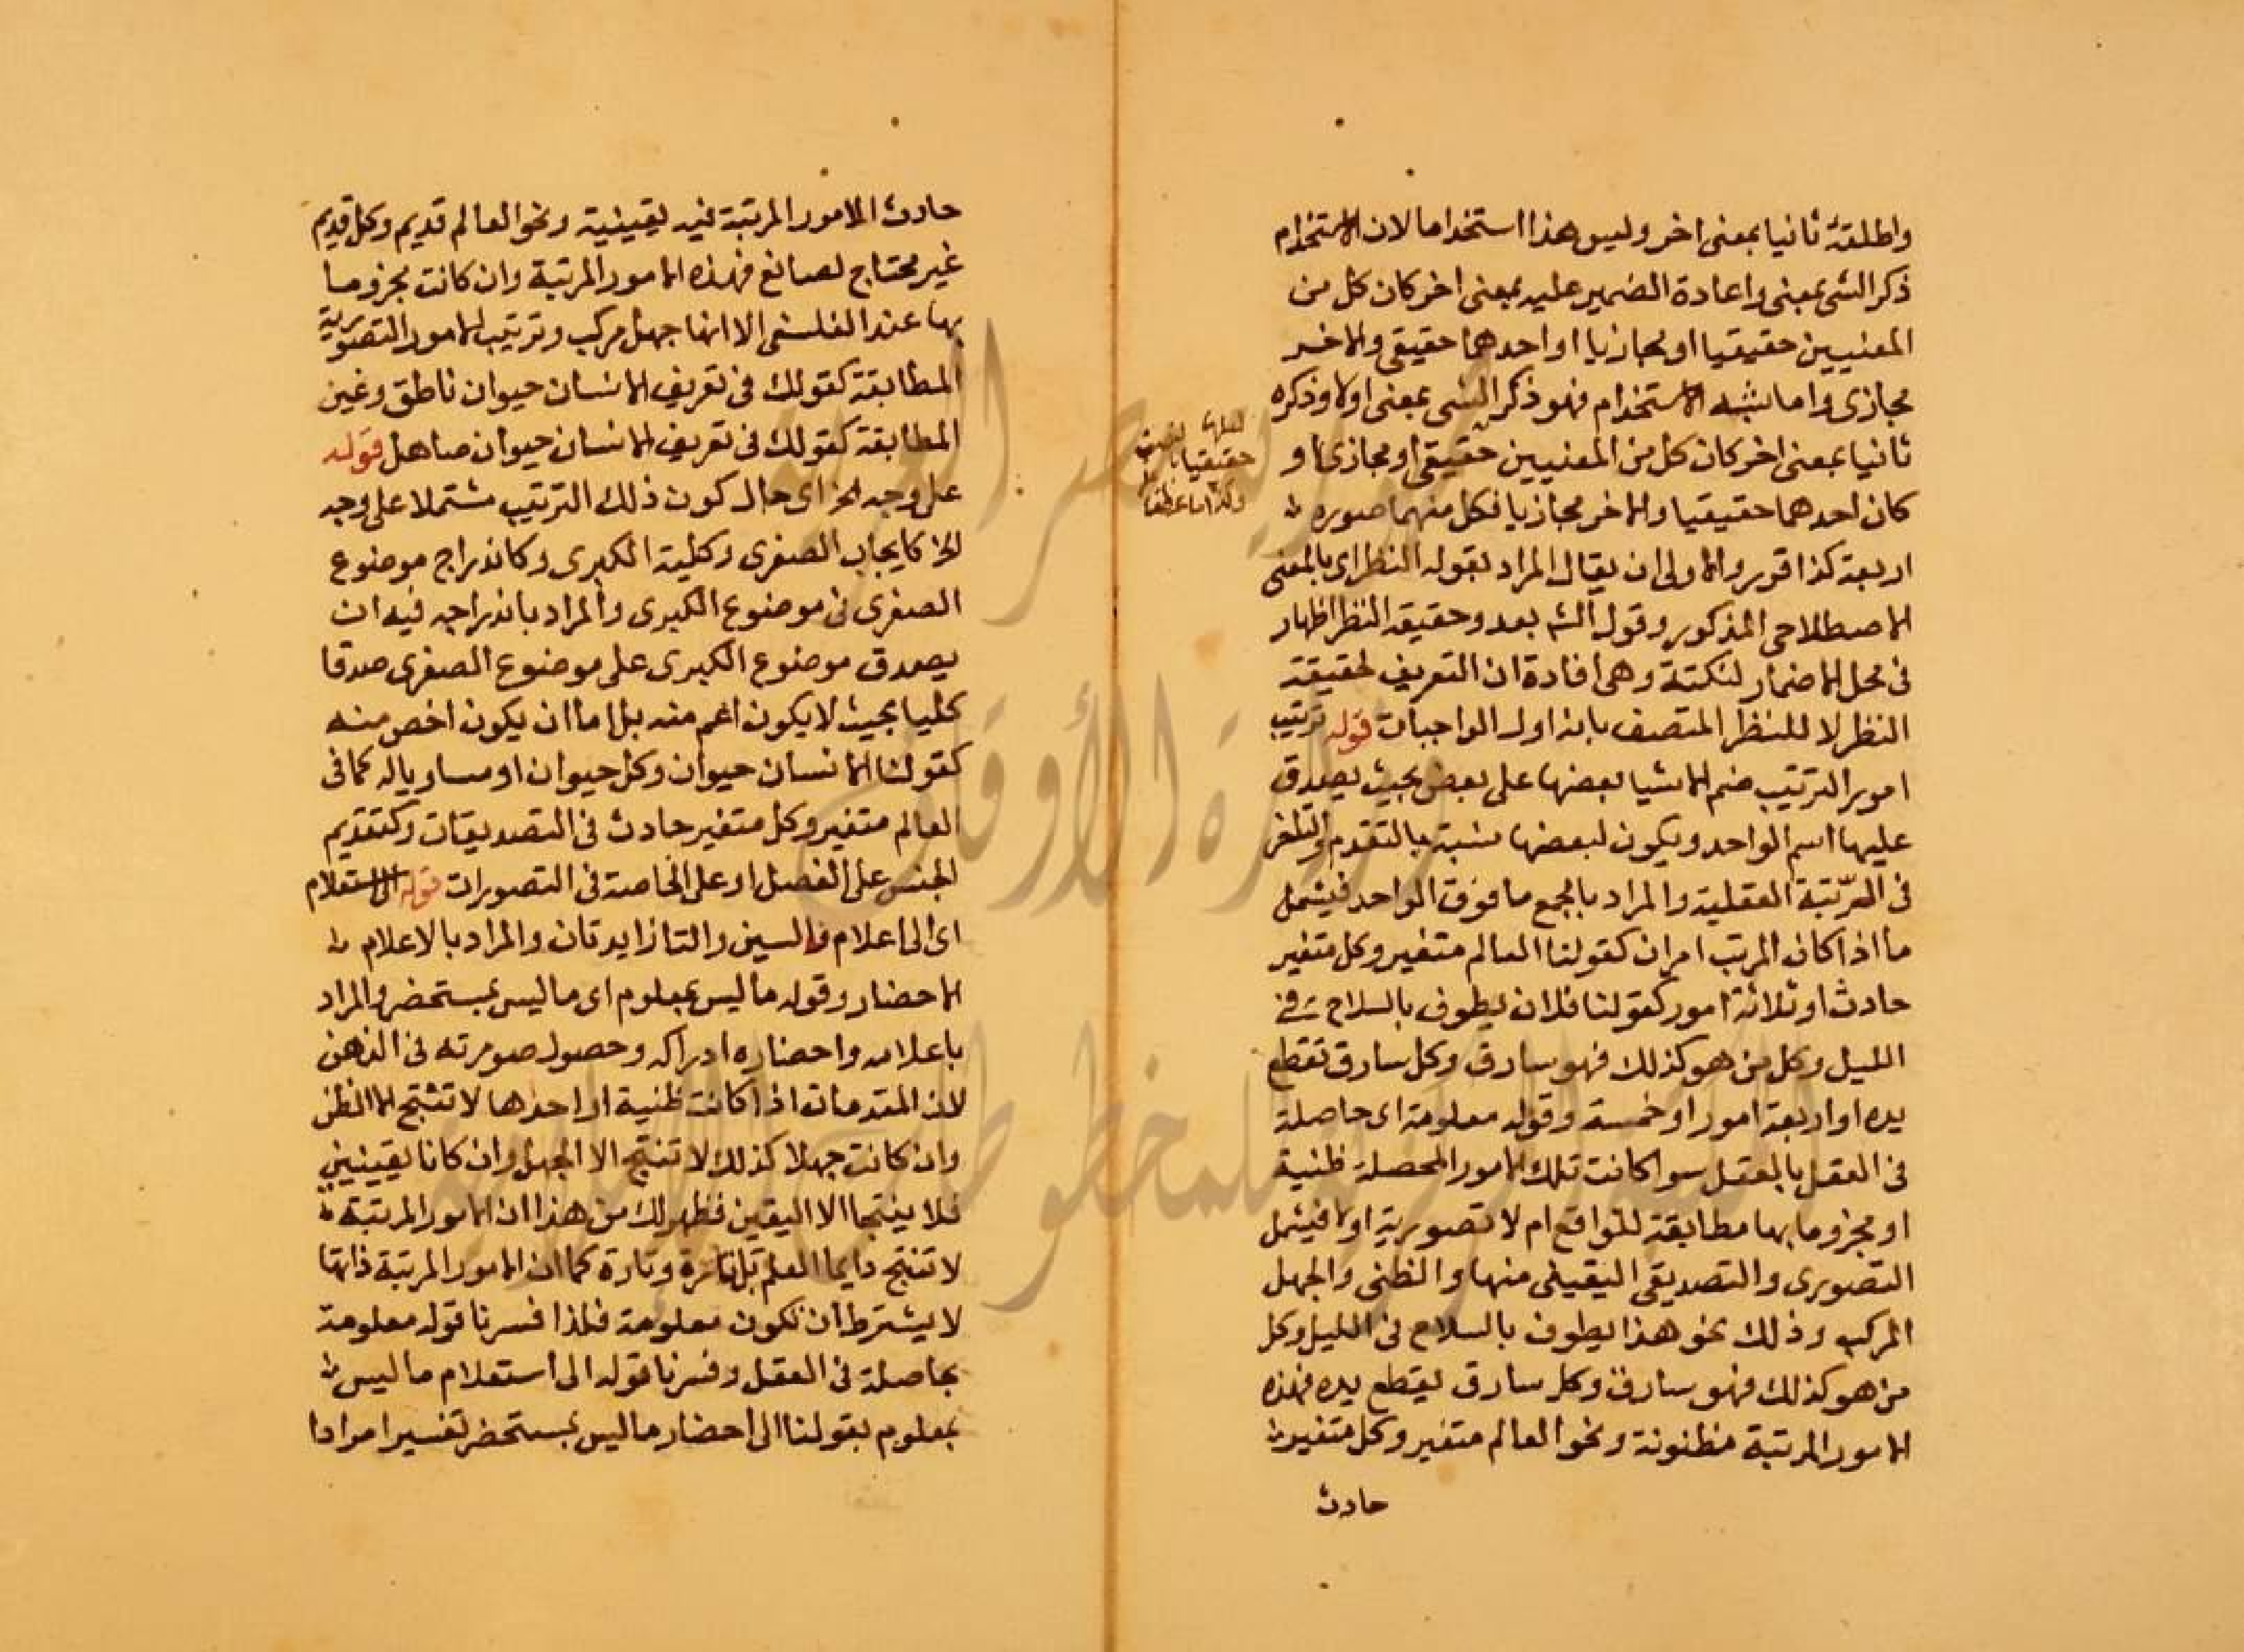 واطلقته ثانيا بمعنى اخر وليس هذا استخداما لان الاستخدام
ذكر الشى بمعنى واعادة الضمير عليه بمعنى اخر كان كل من
المعنيين حقيقيا او مجازيا او احدهما حقيقى والاخر
مجازى واما شبه الاستخدام فهو ذكر الشى بمعنى اولا وذكره
ثانيا بمعنى اخر كان كل من المعنيين حقيقى او مجازى او
كان احدهما حقيقيا والاخر مجازيا فكل منهما صوره
اربعة كذا قرر والاولى ان يقال المراد بقوله النظر اى بالمعنى
الاصطلاحى المذكور وقول الشه بعد وحقيقة النظر اظهار
فى محل الاضمار لنكتة وهى افادة ان التعريف لحقيقة
النظر لا للنظر المتصف بانه اول الواجبات قوله ترتيب
امور الترتيب ضم الاشيا بعضها على بعض بحيث يصدق
عليها اسم الواحد ويكون لبعضها نسبة بالتقدم والتاخر
فى المرتبة العقلية والمراد بالجمع ما فوق الواحد فيشمل
ما اذا كان المرتب امران كقولنا العالم متغير وكل متغير
حادث او ثلاثة امور كقولنا فلان يطوف بالسلاح فى
الليل وكل من هو كذلك فهو سارق وكل سارق تقطع
يده او اربعة امور او خمسة وقوله معلومة اى حاصلة
فى العقل بالعقل سوا كانت تلك الامور المحصلة ظنية
او مجزوما بها مطابقة للواقع ام لا تصورية اولا فيشمل
التصورى والتصديقى اليقينى منها والظنى والجهل
المركب وذلك نحو هذا يطوف بالسلاح فى الليل وكل
من هو كذلك فهو سارق وكل سارق يقطع يده فهذه
الامور المرتبة مظنونة ونحو العالم متغير وكل متغير
حادث
حقيقيا
حادث الامور المرتبة فيه يقينية ونحو العالم قديم وكل قديم
غير محتاج لصانع فهذه الامور المرتبة وان كانت مجزوما
بها عند الفلسفى الا انها جهل مركب وترتيب الامور التصورية
المطابقة كقولك فى تعريف الانسان حيوان ناطق وغير
المطابقة كقولك فى تعريف الانسان حيوان صاهل قوله
على وجه الخ اى حال كون ذلك الترتيب مشتملا على وجه
الخ كايجاب الصغرى وكلية الكبرى وكاندراج موضوع
الصغرى فى موضوع الكبرى والمراد باندراجه فيه ان
يصدق موضوع الكبرى على موضوع الصغرى صدقا
كليا بحيث لا يكون اعم منه بل اما ان يكون اخص منه
كقولنا الانسان حيوان وكل حيوان او مساويا له كما فى
العالم متغير وكل متغير حادث فى التصديقات وكتقديم
الجنس على الفصل او على الخاصة فى التصورات قوله الى استعلام
اى الى اعلام فالسين والتا زايدتان والمراد بالاعلام
الاحضار وقوله ما ليس بمعلوم اى ما ليس بمستحضر والمراد
باعلامه واحضاره ادراكه وحصول صورته فى الذهن
لان المقدمات اذا كانت ظنية او احدها لا تنتج الا الظن
وان كانت جهلا كذلك لا تنتج الا الجهل وان كانا يقينيين
فلا ينتجا الا اليقين فظهر لك من هذا ان الامور المرتبة
لا تنتج دايما العلم بل تارة وتارة كما ان الامور المرتبة ذاتها
لا يشترط ان تكون معلومة فلذا فسرنا قوله معلومة
بحاصلة فى العقل وفسرنا قوله الى استعلام ما ليس
بمعلوم بقولنا الى احضار ما ليس بمستحضر تفسيرا مرادا